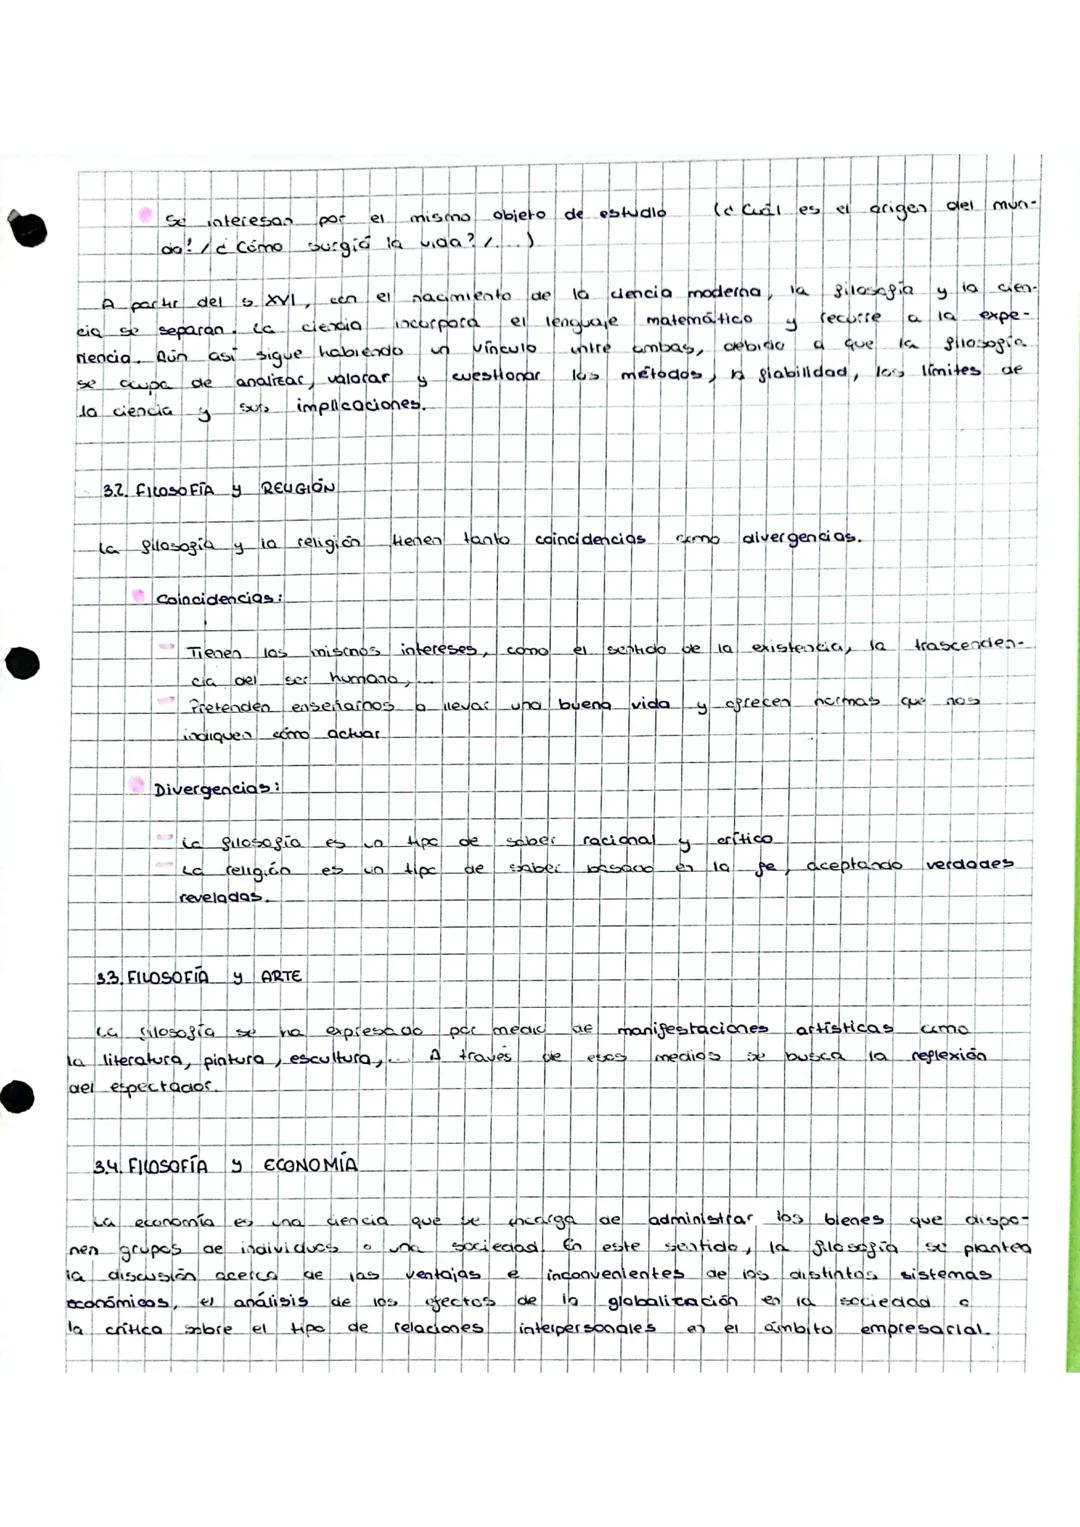 Se interesan por el mismo objeto de estudio (¿Cuál es el origen del mun-
do? / ¿Cómo surgió la vida? / ...)
A partir del s. XVI, con el nacimiento de la ciencia moderna, la filosofía y la cien-
cia se separan. La ciencia incorpora el lenguaje matemático y recurre a la expe-
riencia. Aún así sigue habiendo un vínculo entre ambas, debido a que la filosofía
se ocupa de analizar, valorar y cuestionar los métodos, la fiabilidad, los límites de
la ciencia y sus implicaciones.
3.2. FILOSOFÍA y RELIGIÓN
La filosofía y la religión tienen tanto coincidencias como divergencias.
Coincidencias:
Tienen los mismos intereses, como el sentido de la existencia, la trascenden-
cia del ser humano,...
Pretenden enseñarnos a llevar una buena vida y ofrecen normas que nos
indiquen cómo actuar
Divergencias:
La filosofía es un tipo de saber racional y crítico
La religión es un tipo de saber basado en la fe, aceptando verdades
reveladas.
3.3. FILOSOFÍA y ARTE
La filosofía se ha expresado por medio de manifestaciones artísticas como
la literatura, pintura, escultura,... A través de esos medios se busca la reflexión
del espectador.
3.4. FILOSOFÍA y ECONOMÍA
La economía es una ciencia que se encarga de administrar los bienes que dispo-
nen grupos de individuos o una sociedad. En este sentido, la filosofía se plantea
la discusión acerca de las ventajas e inconvenientes de los distintos sistemas
económicos, el análisis de los efectos de la globalización en la sociedad o
la crítica sobre el tipo de relaciones interpersonales en el ámbito empresarial.